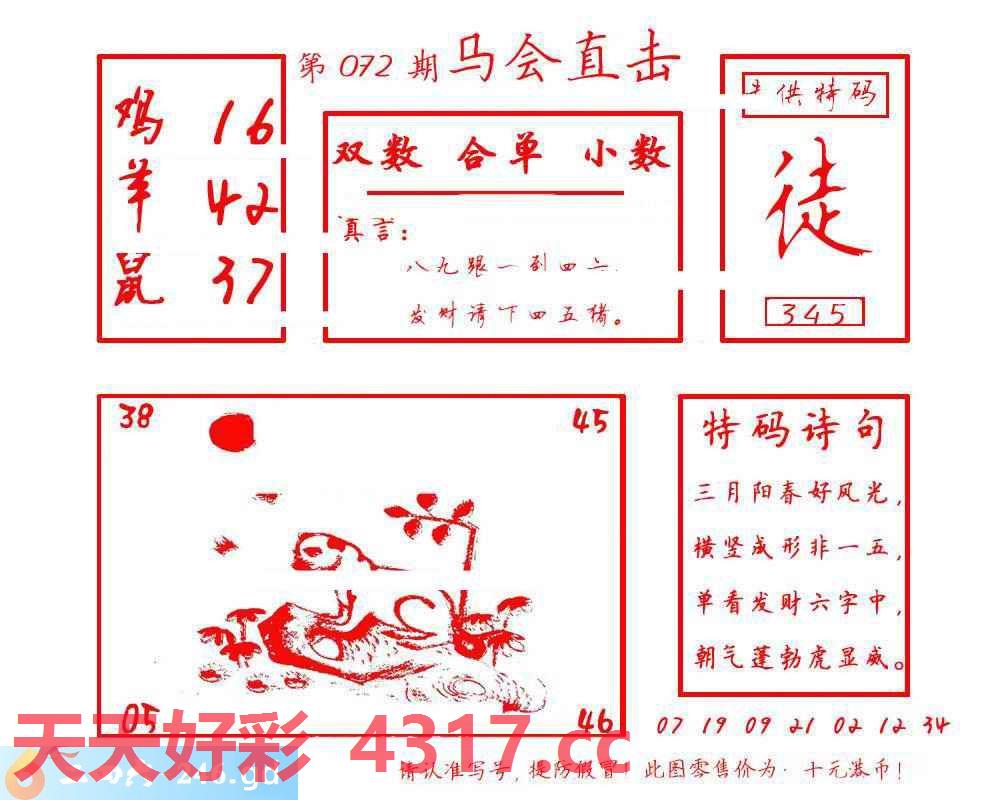 第072期马会直击
鸡 16
羊 42
鼠 37
双数 合单 小数
真言：
八九跟一到四
发财请下四五猪。
供特码
徒
345
38
45
05
46
特码诗句
三月阳春好风光，
横竖成形非一五，
单看发财六字中，
朝气蓬勃虎显威。
07 19 09 21 02 12 34
天天好彩 4317.cc
246.gd
请认准写号，提防假冒！此图零售价为·十元港币！